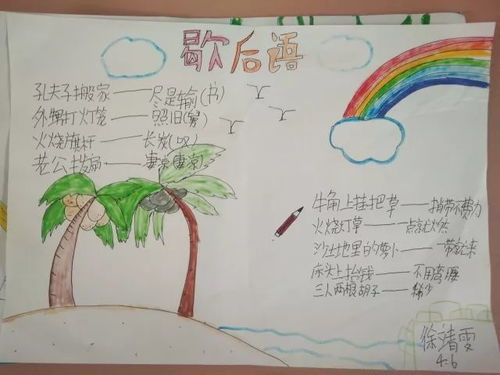 歇后语
孔夫子搬家——尽是输(书)
外甥打灯笼——照旧(舅)
火烧旗杆——长炭(叹)
老公拨扇——妻凉(凄凉)
牛角上挂把草——捎带不费力
火烧灯草——一点就燃
沙土地里的萝卜——一带就来
床头上拾钱——不用弯腰
三人两根胡子——稀少
徐靖雯
4.6